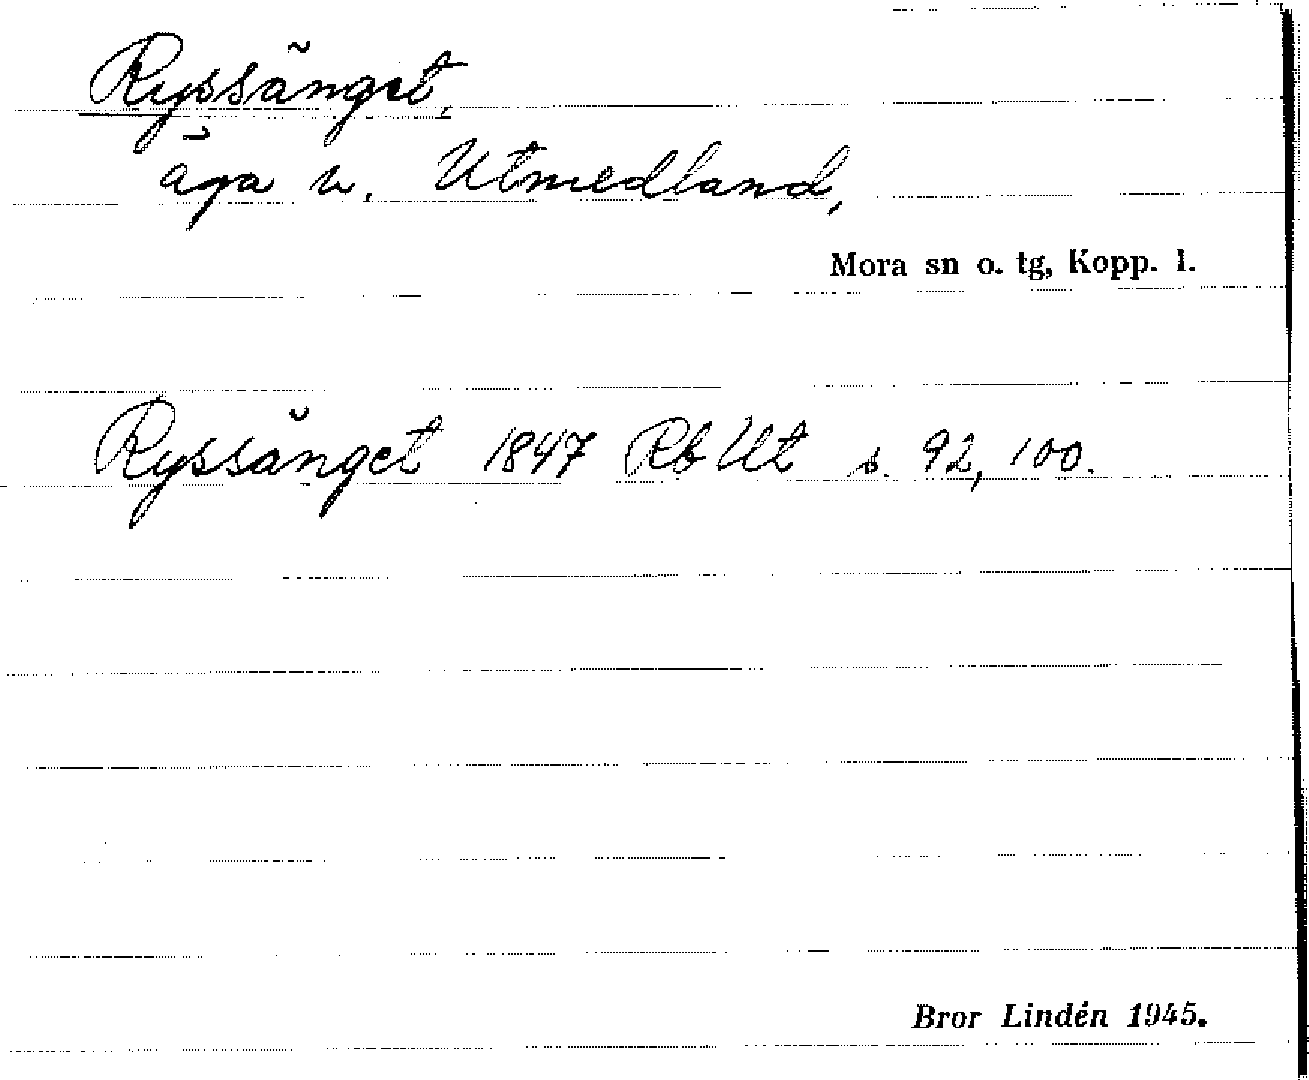 Ryssänget,
äga v. Utmedland,
Mora sn o. tg, Kopp. l.
Ryssänget 1847 Rb Ut s. 92, 100.
Bror Lindén 1945.